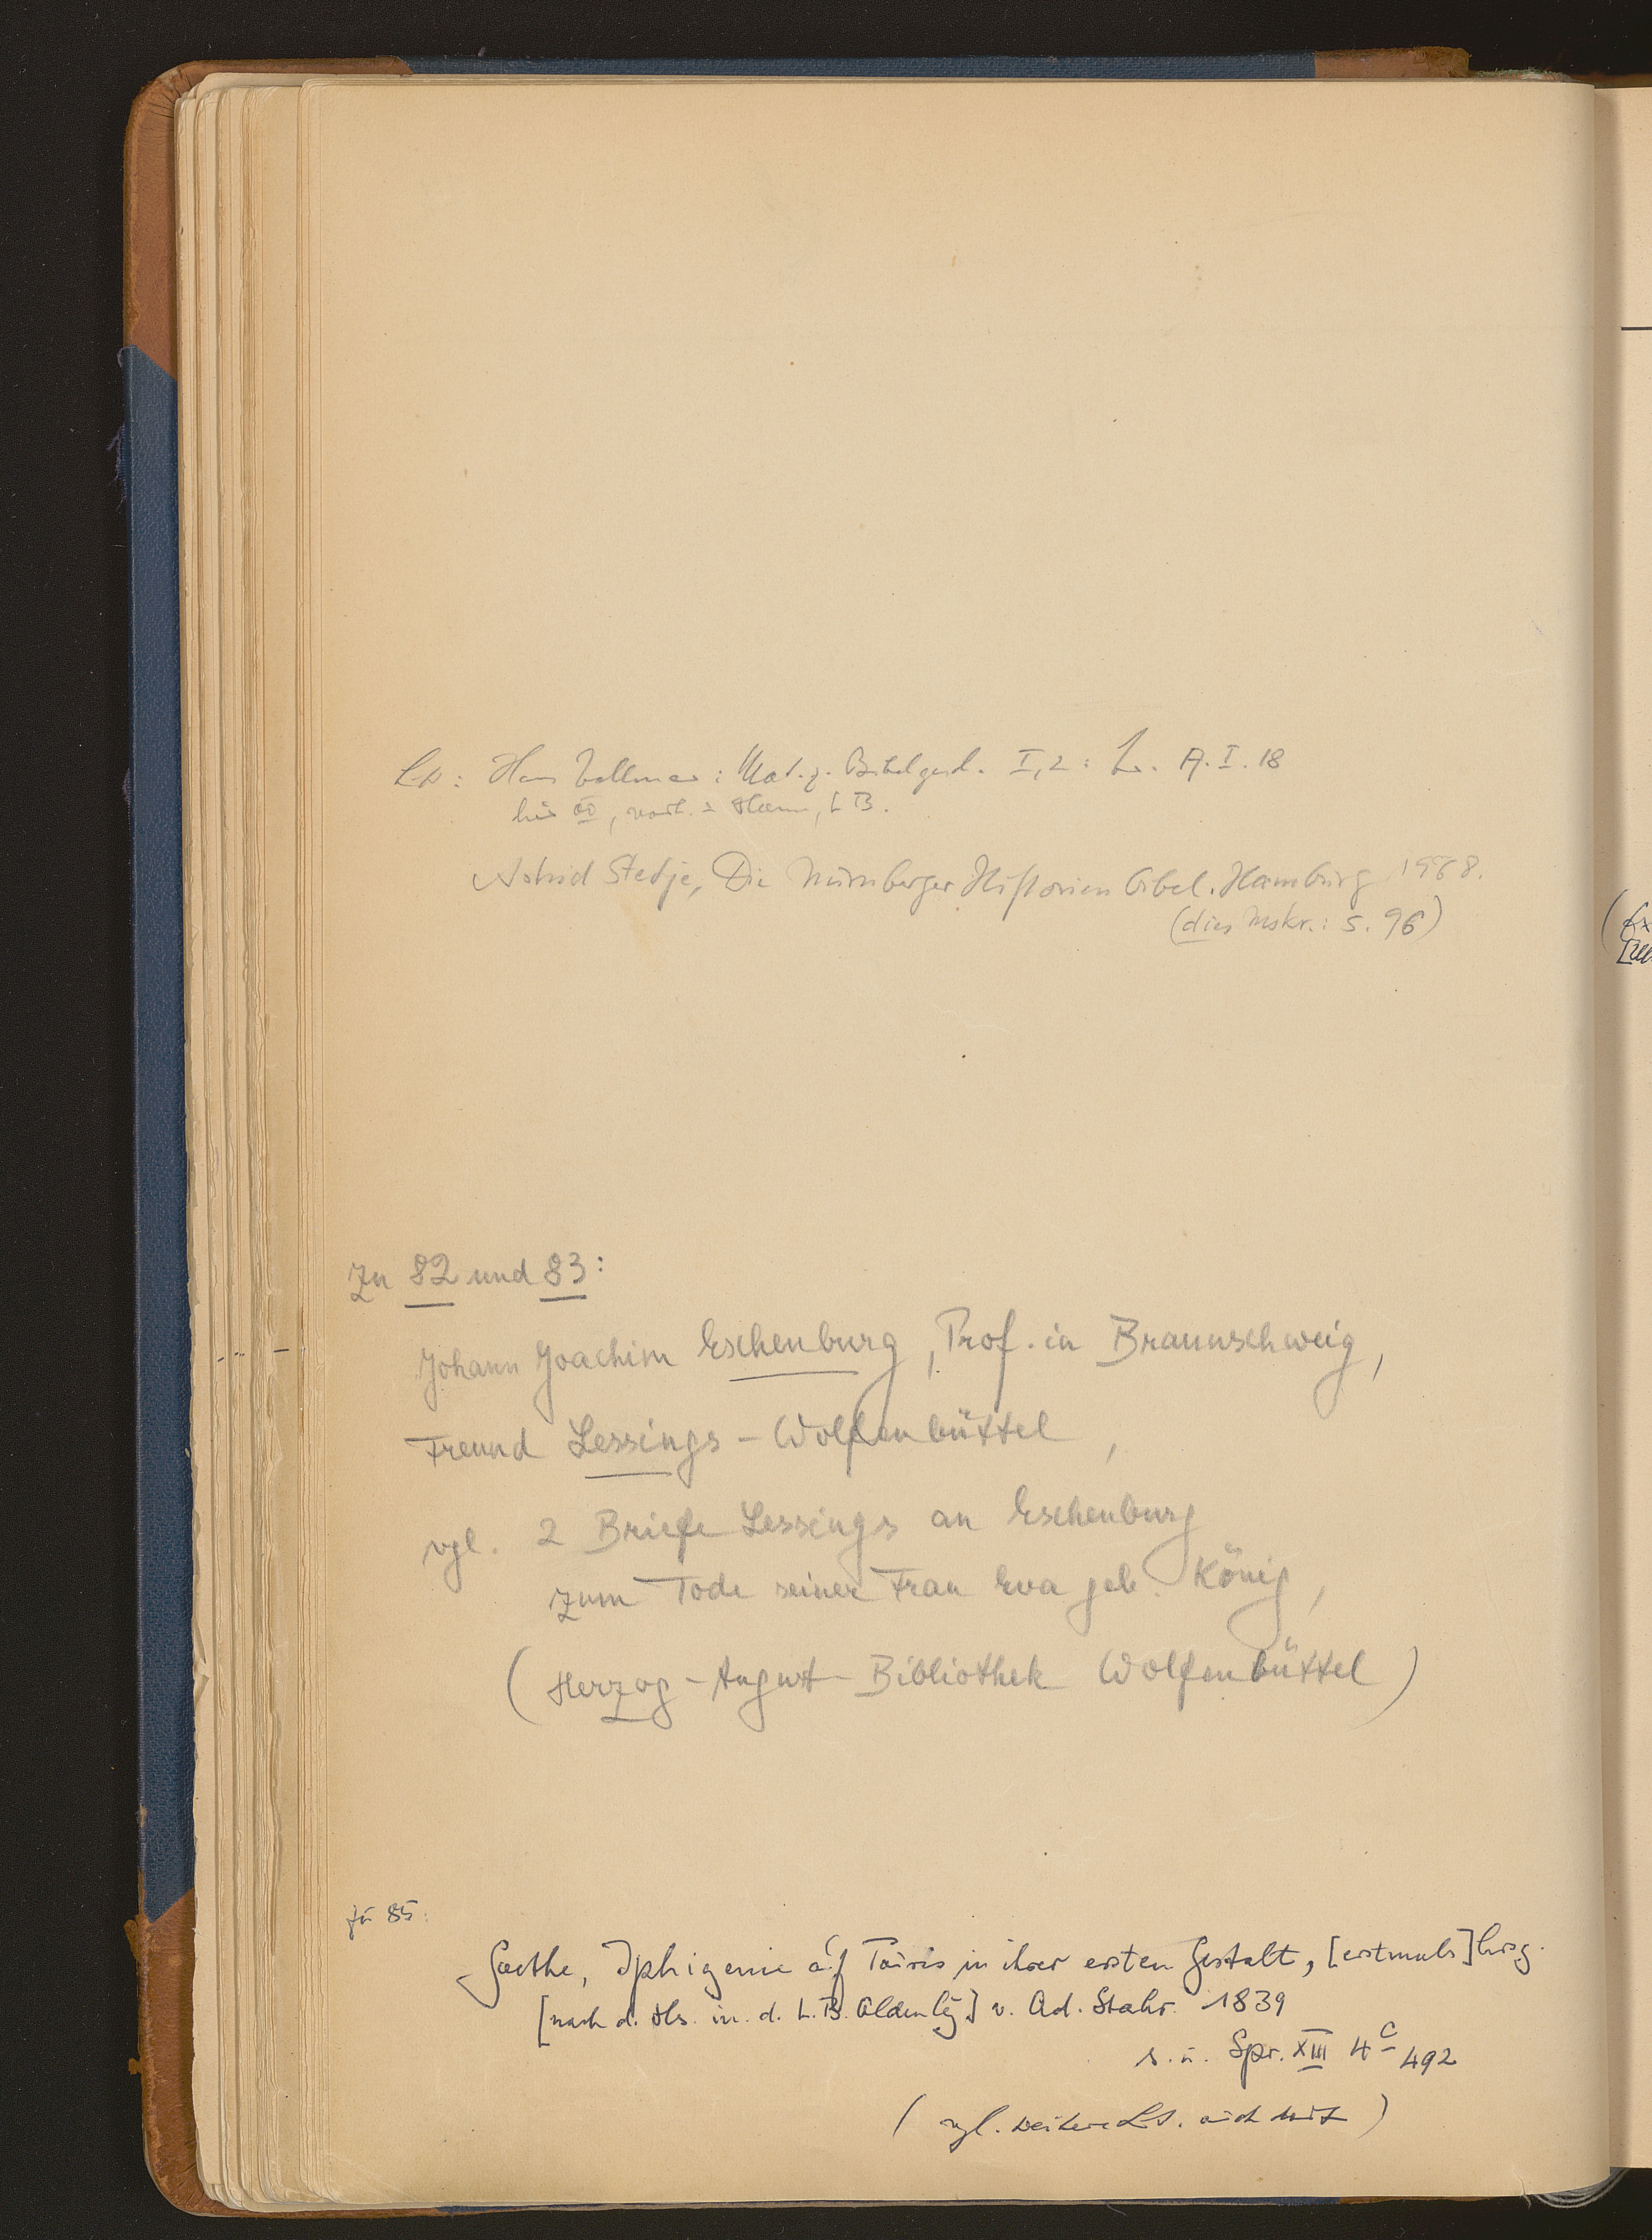 Lit: Hans Vollmer: Mat. z. Bibelgesch. I,2: A. I. 18
hier, vorh. in Hann, LB.
Astrid Stedje, Die Nürnberger Historienbibel. Hamburg 1968.
(dies Mskr.: S. 96)
Zu 82 und 83:
Johann Joachim Eschenburg, Prof. in Braunschweig,
Freund Lessings - Wolfenbüttel,
vgl. 2 Briefe Lessings an Eschenburg
zum Tode seiner Frau Eva geb. König,
(Herzog-August-Bibliothek Wolfenbüttel)
zu 85:
Goethe, Iphigenie auf Tauris in ihrer ersten Gestalt, [erstmals] hrsg.
[nach d. Hs. in d. L.B. Oldenbg] v. Ad. Stahr. 1839
s. u. Spr. XIII 4 c 492
(vgl. weitere Lit.)